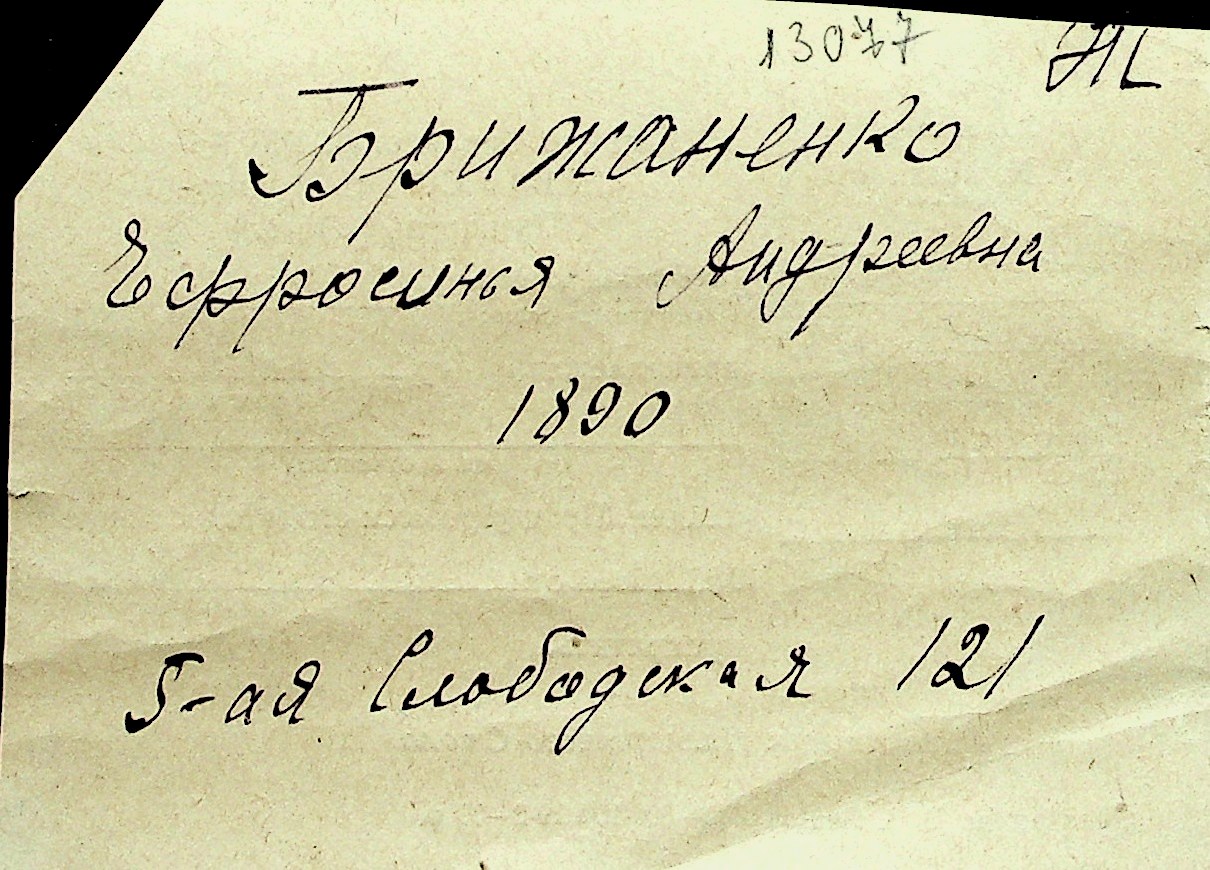 13077
Брижаненко
Ефросинья Андреевна
1890
5-ая Слободская 121